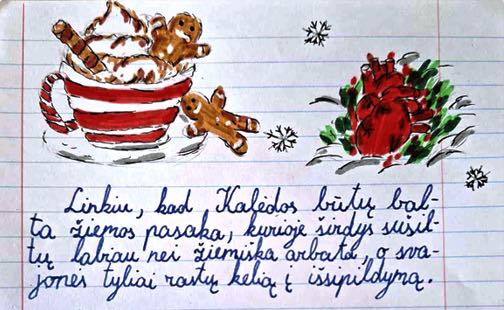 Linkiu, kad Kalėdos būtų bal-
ta žiemos pasaka, kurioje širdys sušil-
tų labiau nei žiemiška arbata, o sva-
jonės tyliai rastų kelią į išsipildymą.